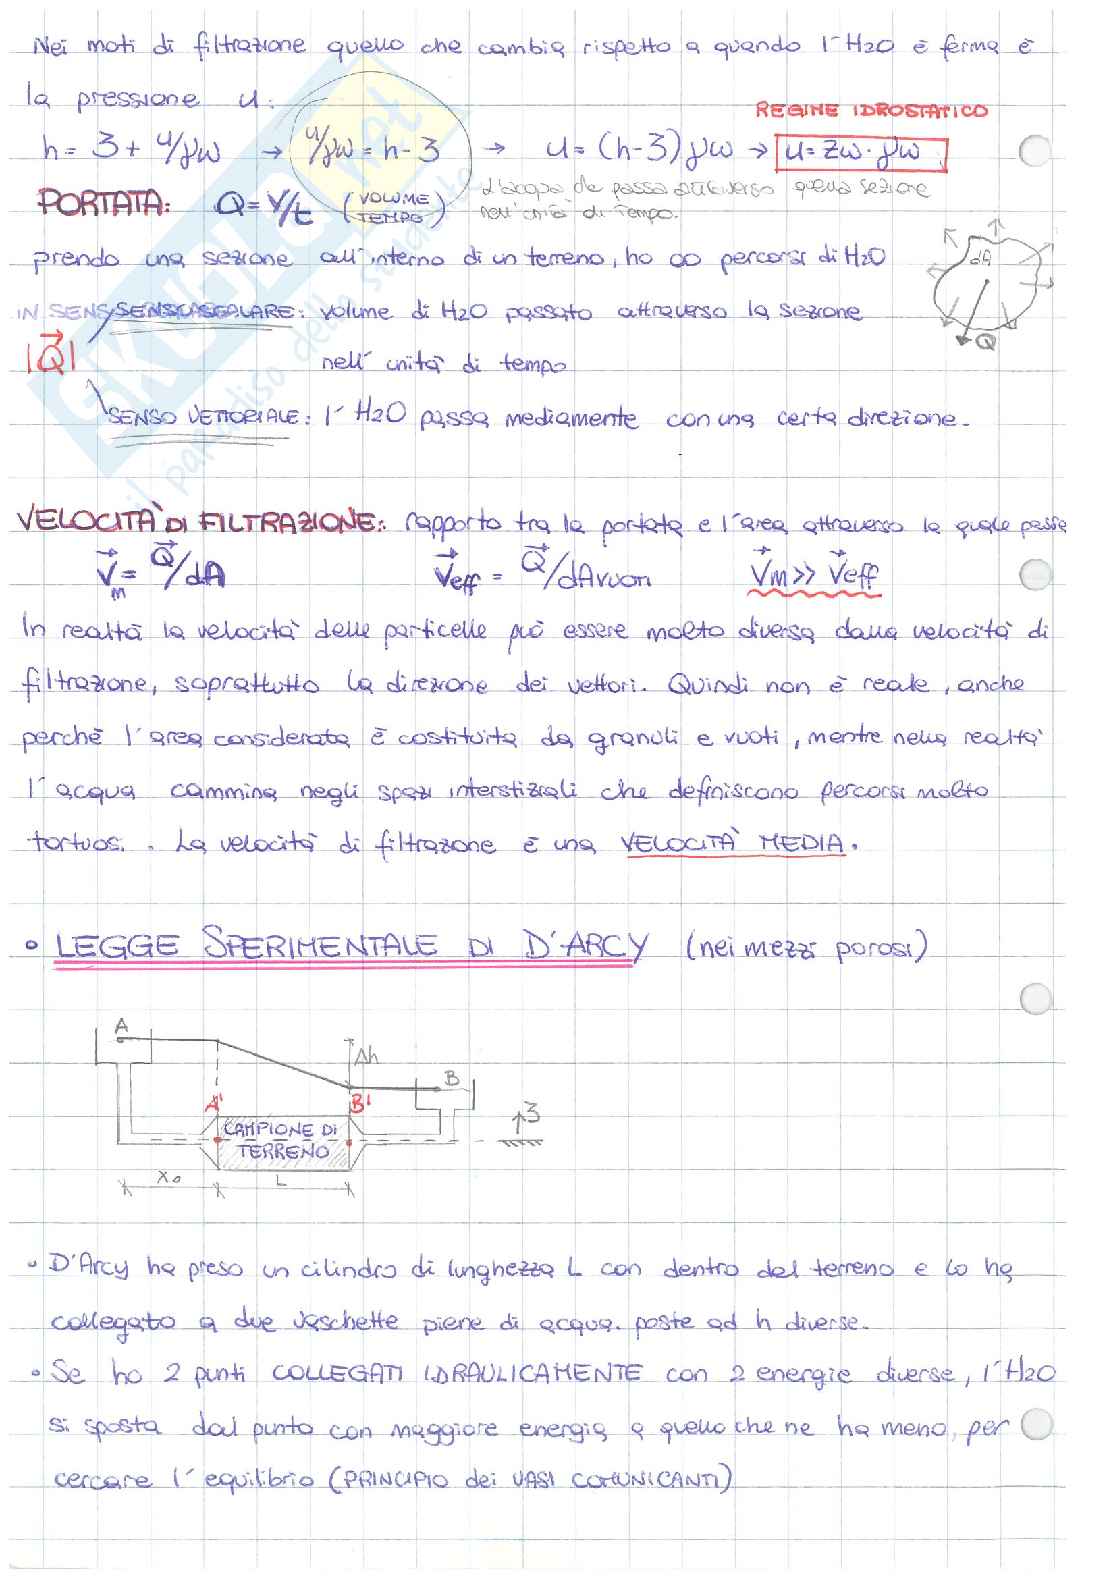 Nei moti di filtrazione quello che cambia rispetto a quando l'H2O è ferma è
la pressione u:
REGIME IDROSTATICO
h = z + u/γw → u/γw = h - z → u = (h-z) γw → u = zw · γw
PORTATA: Q = V/t (VOLUME/TEMPO) L'acqua che passa attraverso quella sezione
nell'unità di tempo.
prendo una sezione all'interno di un terreno, ho ∞ percorsi di H2O
dA
Q
IN SENS SENSO SCALARE: volume di H2O passato attraverso la sezione
|Q| nell'unità di tempo
SENSO VETTORIALE: l'H2O passa mediamente con una certa direzione.
VELOCITÀ DI FILTRAZIONE: rapporto tra la portata e l'area attraverso la quale passa
Vm = Q/dA Veff = Q/dAvuoti Vm >> Veff
In realtà la velocità delle particelle può essere molto diversa dalla velocità di
filtrazione, soprattutto la direzione dei vettori. Quindi non è reale, anche
perchè l'area considerata è costituita da granuli e vuoti, mentre nella realtà
l'acqua cammina negli spazi interstiziali che definiscono percorsi molto
tortuosi. La velocità di filtrazione è una VELOCITÀ MEDIA.
• LEGGE SPERIMENTALE DI D'ARCY (nei mezzi porosi)
A
Δh
B
A' B'
z
CAMPIONE DI
TERRENO
X0 L
• D'Arcy ha preso un cilindro di lunghezza L con dentro del terreno e lo ha
collegato a due vaschette piene di acqua poste ad h diverse.
• Se ho 2 punti COLLEGATI IDRAULICAMENTE con 2 energie diverse, l'H2O
si sposta dal punto con maggiore energia a quello che ne ha meno, per
cercare l'equilibrio (PRINCIPIO dei VASI COMUNICANTI)
SKUOLA.net
il paradiso dello studente